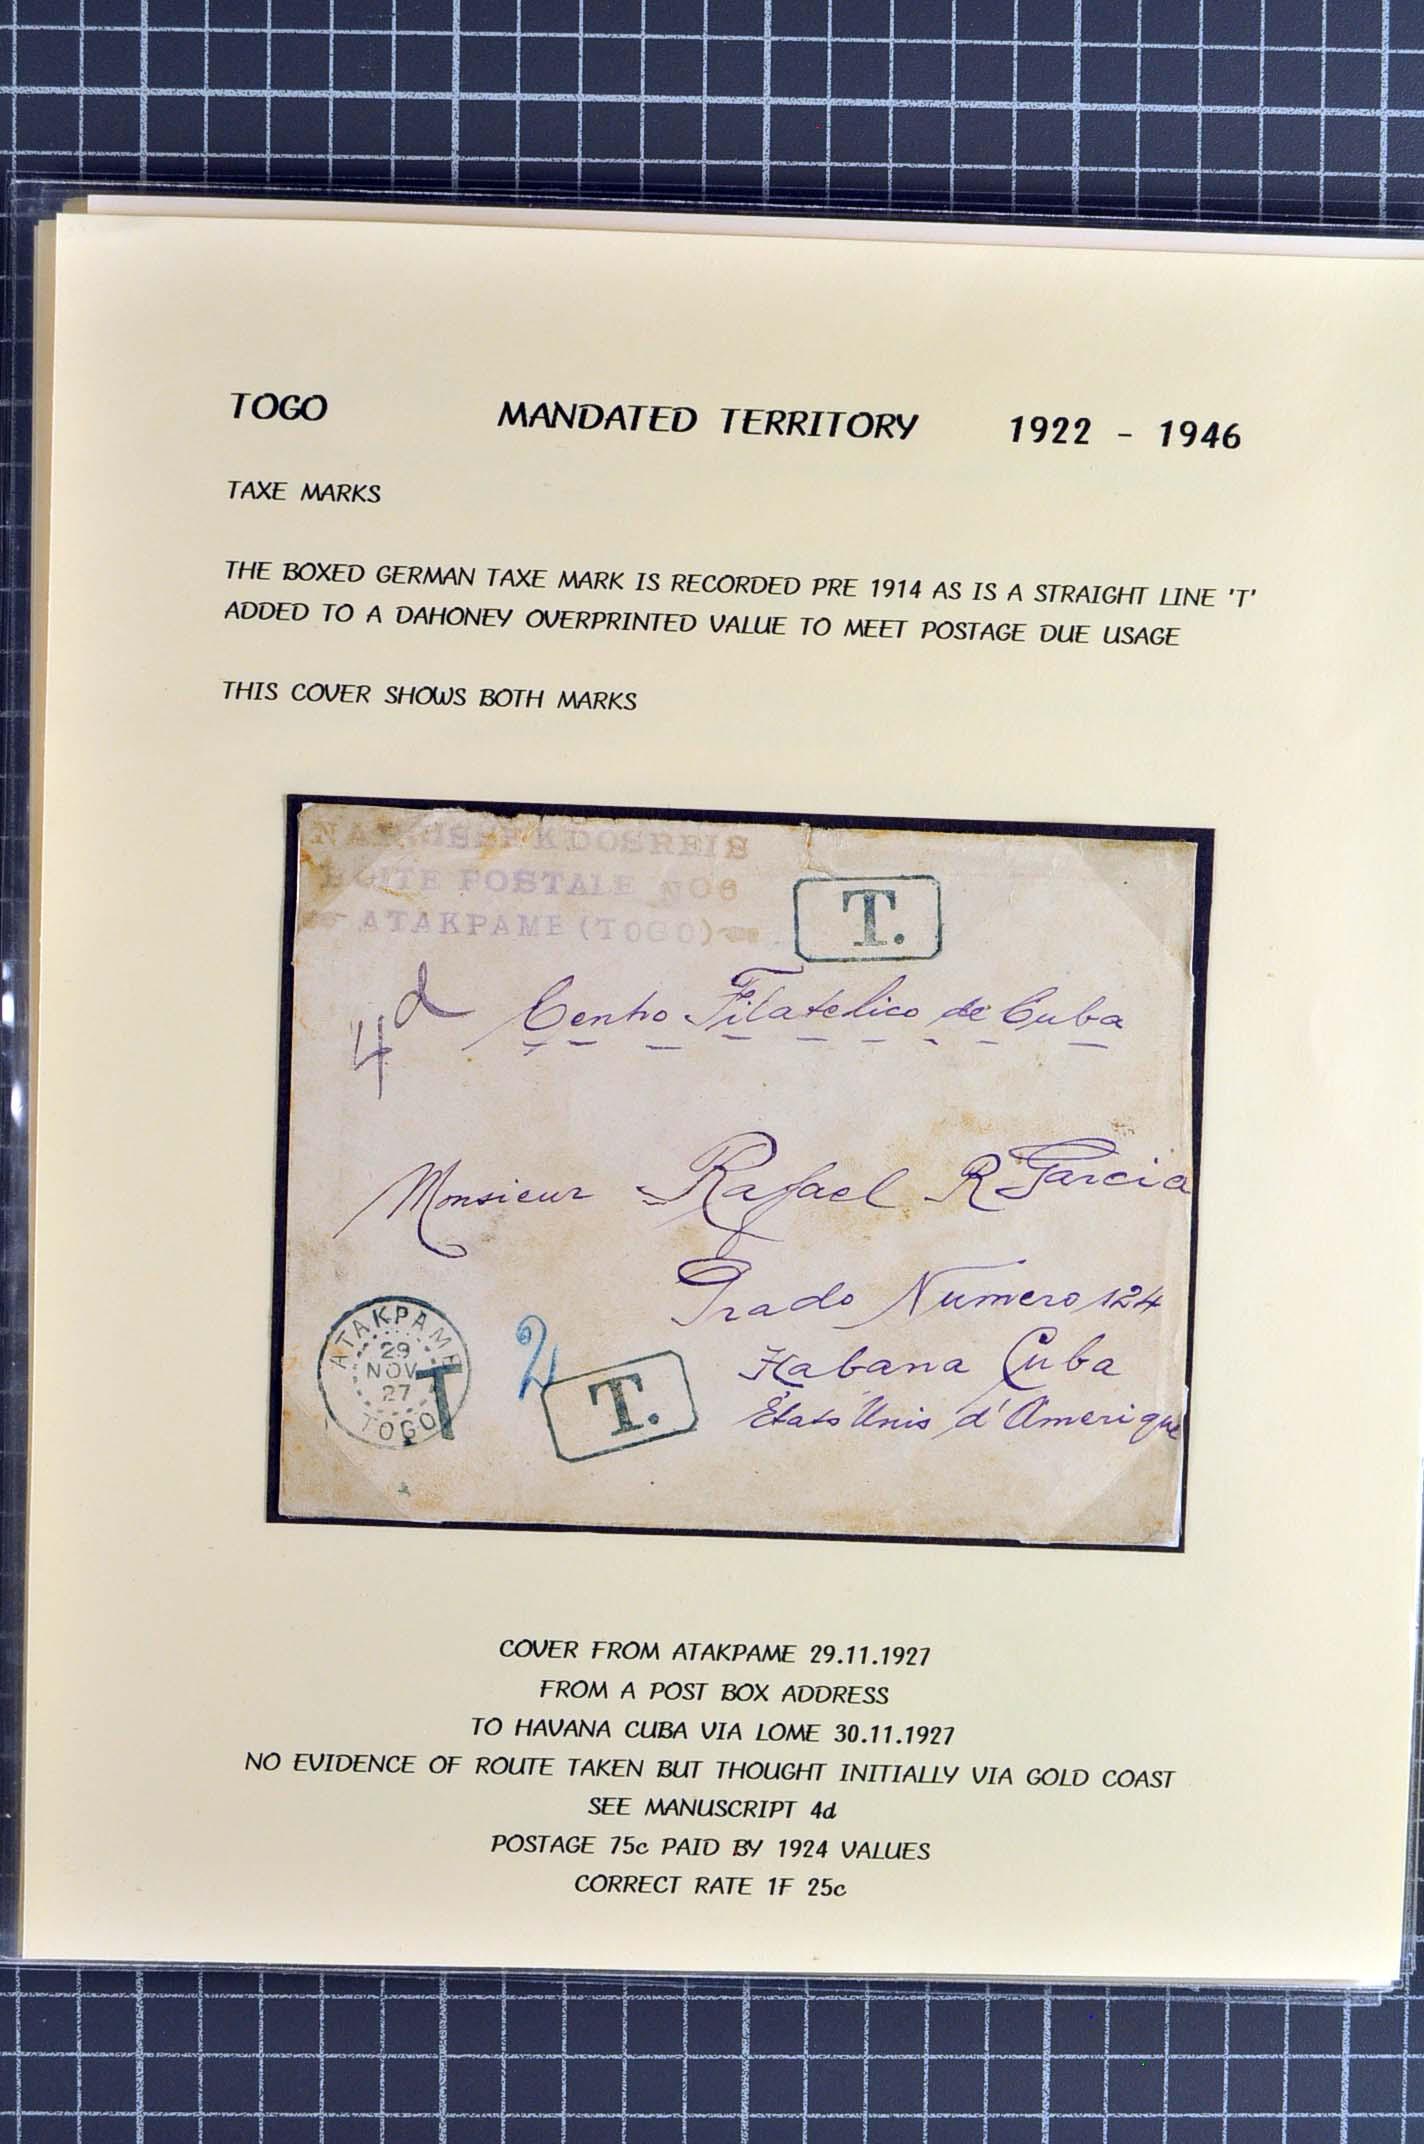 TOGO MANDATED TERRITORY 1922 - 1946
TAXE MARKS
THE BOXED GERMAN TAXE MARK IS RECORDED PRE 1914 AS IS A STRAIGHT LINE 'T'
ADDED TO A DAHONEY OVERPRINTED VALUE TO MEET POSTAGE DUE USAGE
THIS COVER SHOWS BOTH MARKS
DOSREIS
BOITE POSTALE NO6
ATAKPAME (TOGO)
T.
4d
Centro Filatelico de Cuba
Monsieur Rafael R Garcia
Prado Numero 124
Habana Cuba
Etats Unis d'Amerique
ATAKPAME
29
NOV
27
TOGO
T
2
T.
COVER FROM ATAKPAME 29.11.1927
FROM A POST BOX ADDRESS
TO HAVANA CUBA VIA LOME 30.11.1927
NO EVIDENCE OF ROUTE TAKEN BUT THOUGHT INITIALLY VIA GOLD COAST
SEE MANUSCRIPT 4d
POSTAGE 75c PAID BY 1924 VALUES
CORRECT RATE 1F 25c